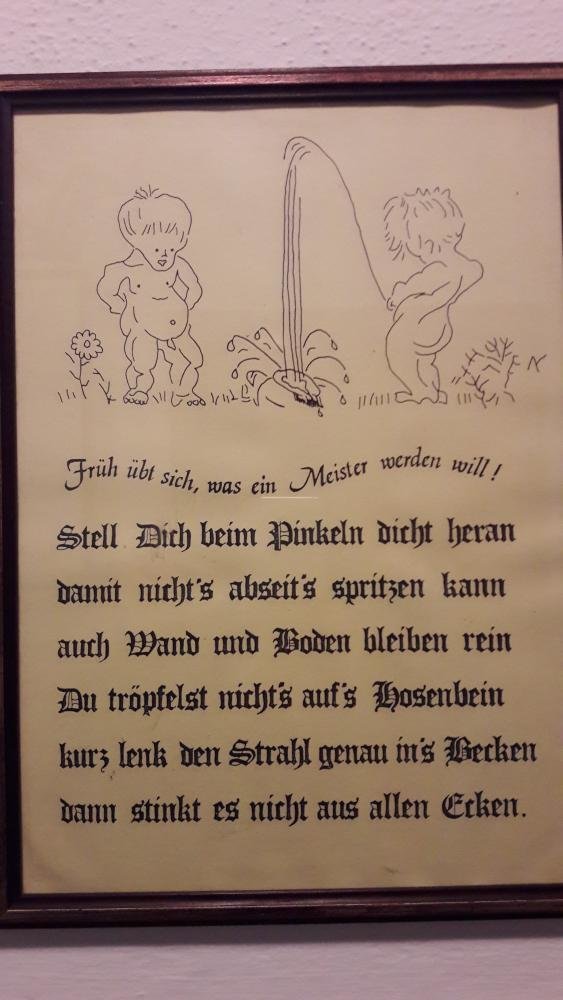 Früh übt sich, was ein Meister werden will!
Stell Dich beim Pinkeln dicht heran
damit nicht's abseit's spritzen kann
auch Wand und Boden bleiben rein
Du tröpfelst nicht's auf's Hosenbein
kurz lenk den Strahl genau in's Becken
dann stinkt es nicht aus allen Ecken.